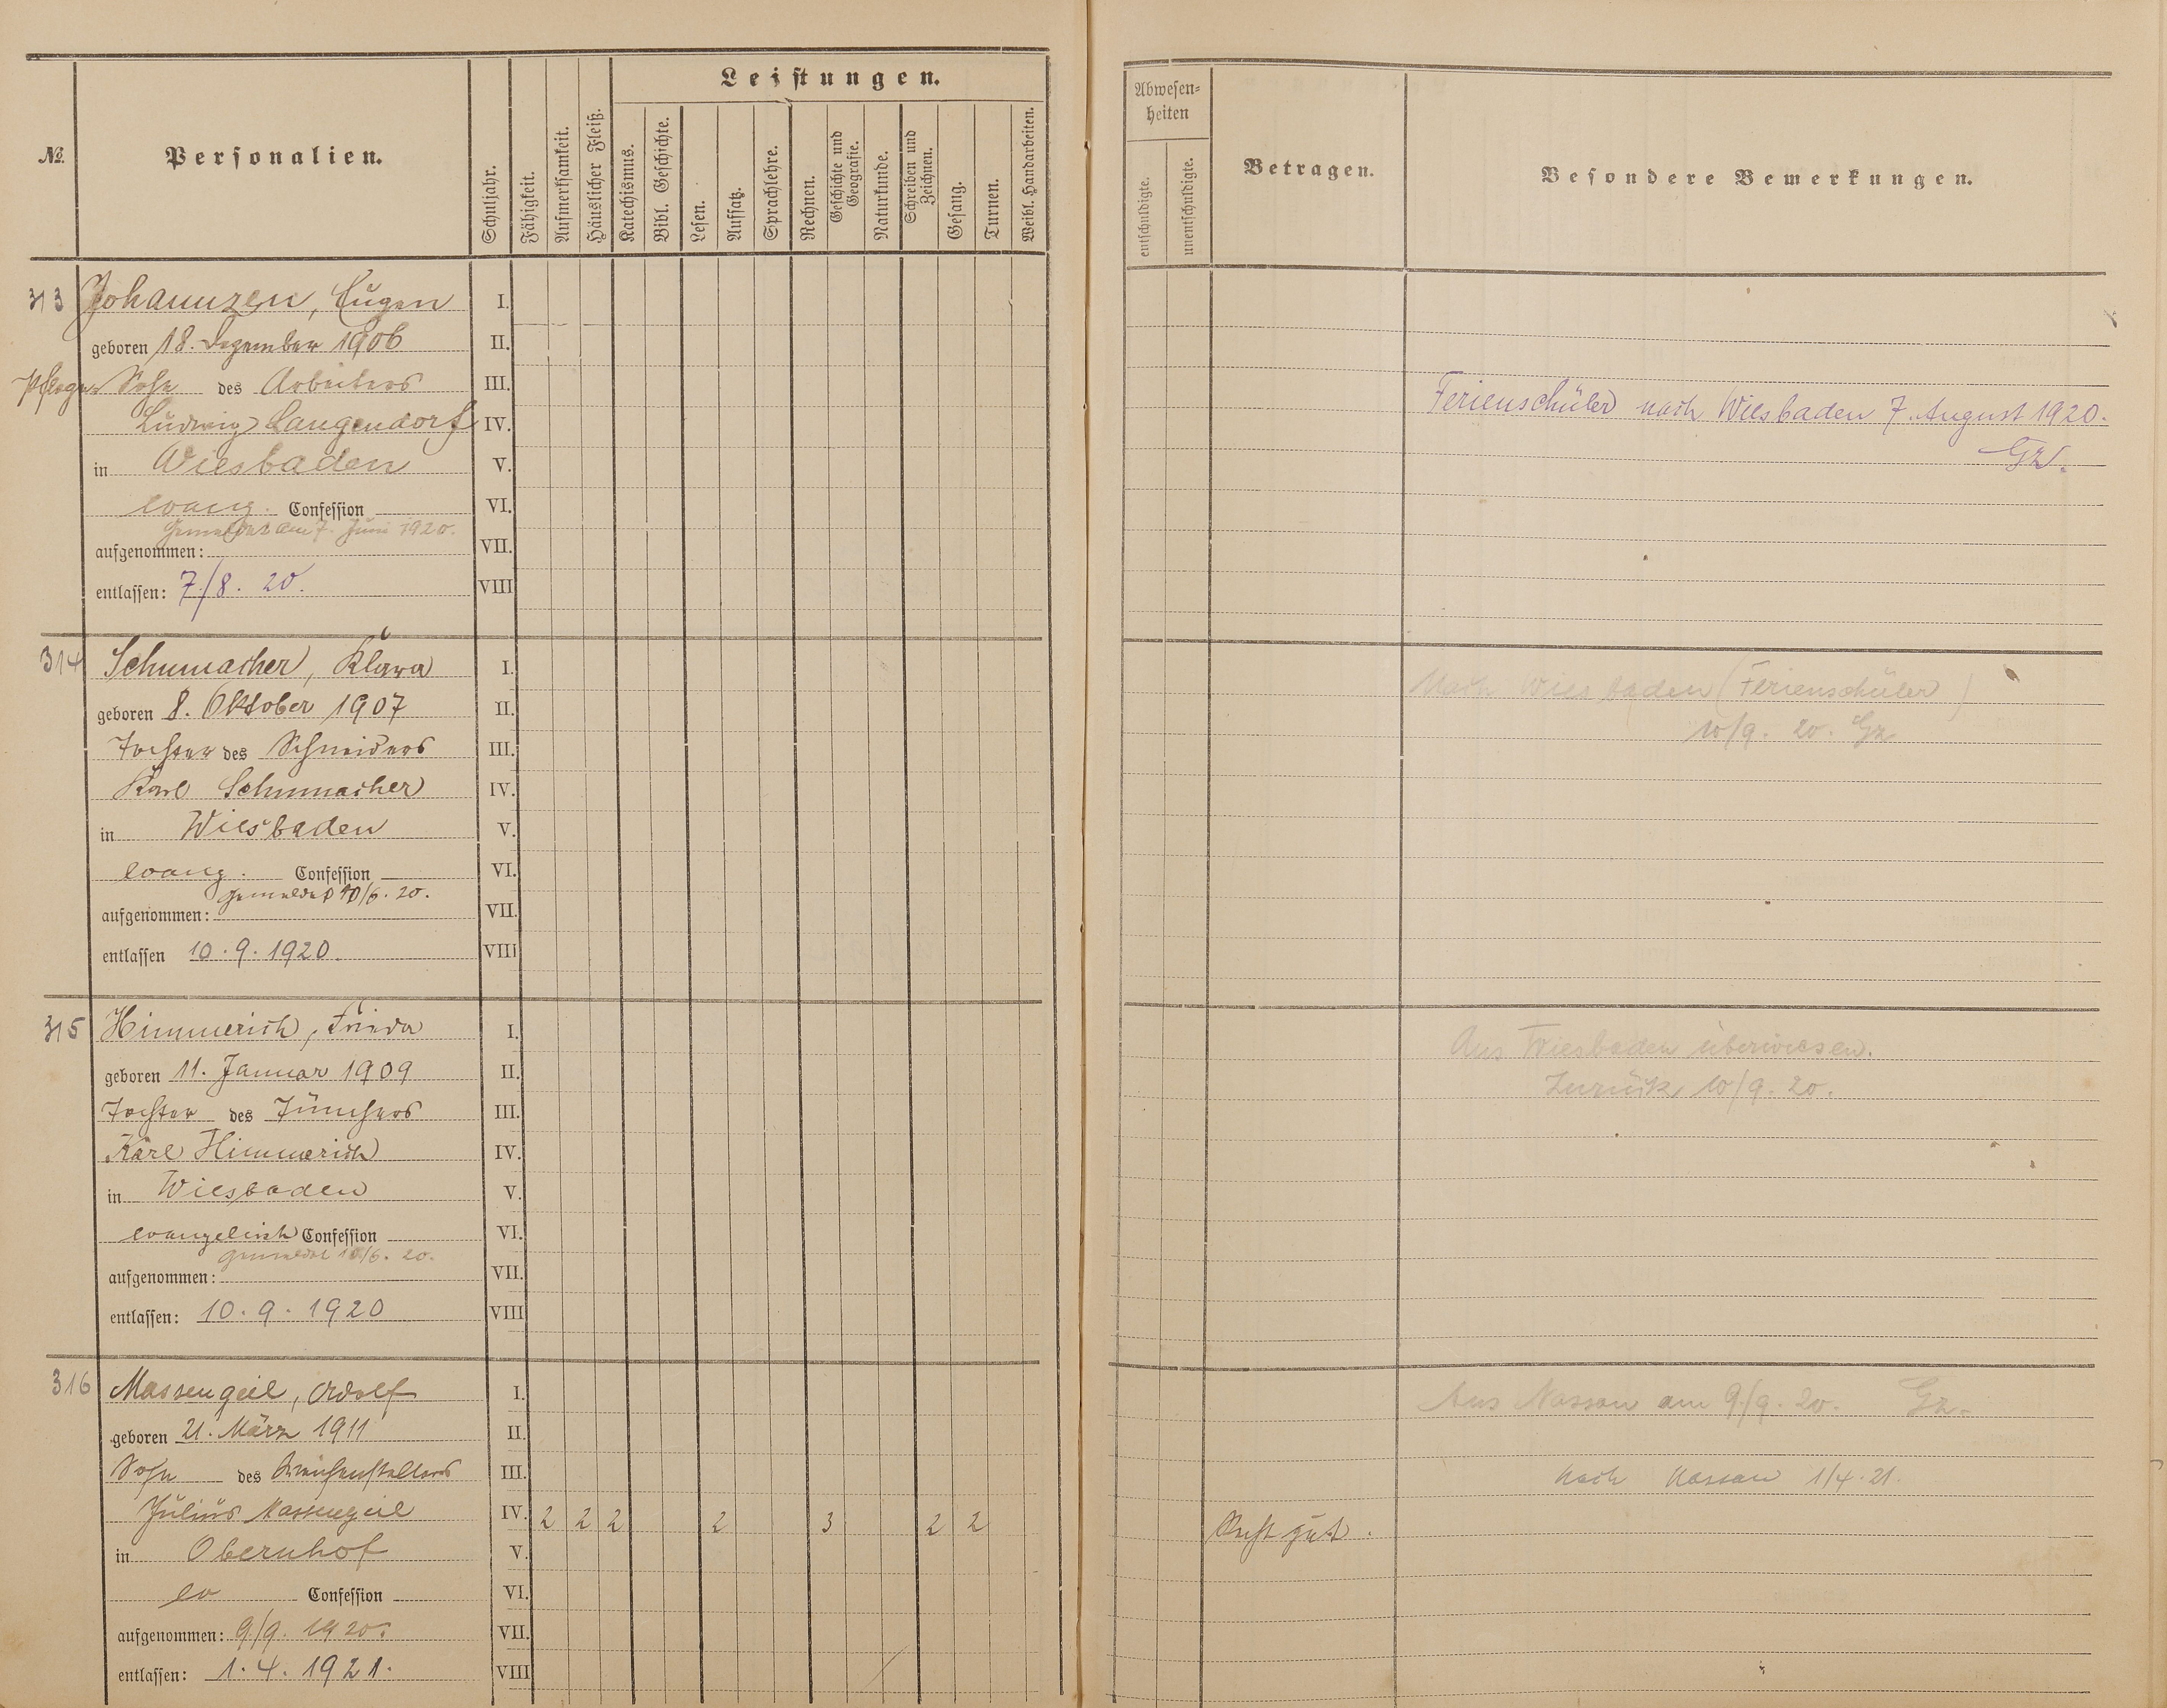 Leistungen.
Abwesen=
heiten
№.
Personalien.
Schuljahr.
Fähigkeit.
Aufmerksamkeit.
Häuslicher Fleiß.
Katechismus.
Bibl. Geschichte.
Lesen.
Aufsatz.
Sprachlehre.
Rechnen.
Geschichte und
Geografie.
Naturkunde.
Schreiben und
Zeichnen.
Gesang.
Turnen.
Weibl. Handarbeiten.
entschuldigte.
unentschuldigte.
Betragen.
Besondere Bemerkungen.
313 Johannzen, Eugen I.
geboren 18. Dezember 1906 II.
Pflege Sohn des Arbeiters III.
Ludwig Langendorf IV.
Ferienschüler nach Wiesbaden 7. August 1920.
Gz.
in Wiesbaden V.
evang. Confession VI.
gemeldet am 7. Juni 1920.
aufgenommen: VII.
entlassen: 7./8. 20. VIII
314 Schumacher, Klara I.
Nach Wiesbaden (Ferienschüler)
geboren 8. Oktober 1907 II.
10/9. 20. Gz
Tochter des Schneiders III.
Karl Schumacher IV.
in Wiesbaden V.
evang. Confession VI.
gemeldet 10/6. 20.
aufgenommen: VII.
entlassen 10. 9. 1920. VIII
315 Himmerich, Frieda I.
Aus Wiesbaden überwiesen.
geboren 11. Januar 1909 II.
Zurück 10/9. 20.
Tochter des Tünchers III.
Karl Himmerich IV.
in Wiesbaden V.
evangelisch Confession VI.
gemeldet 10/6. 20.
aufgenommen: VII.
entlassen: 10. 9. 1920 VIII
316 Massengeil, Adolf I.
Aus Nassau am 9/9. 20. Gz.
geboren 21. März 1911 II.
Sohn des III.
Nach Nassau 1/4. 21.
Julius Massengeil IV. 2 2 2 2 3 2 2
Recht gut.
in Obernhof V.
ev Confession VI.
aufgenommen: 9/9. 1920. VII.
entlassen: 1. 4. 1921. VIII